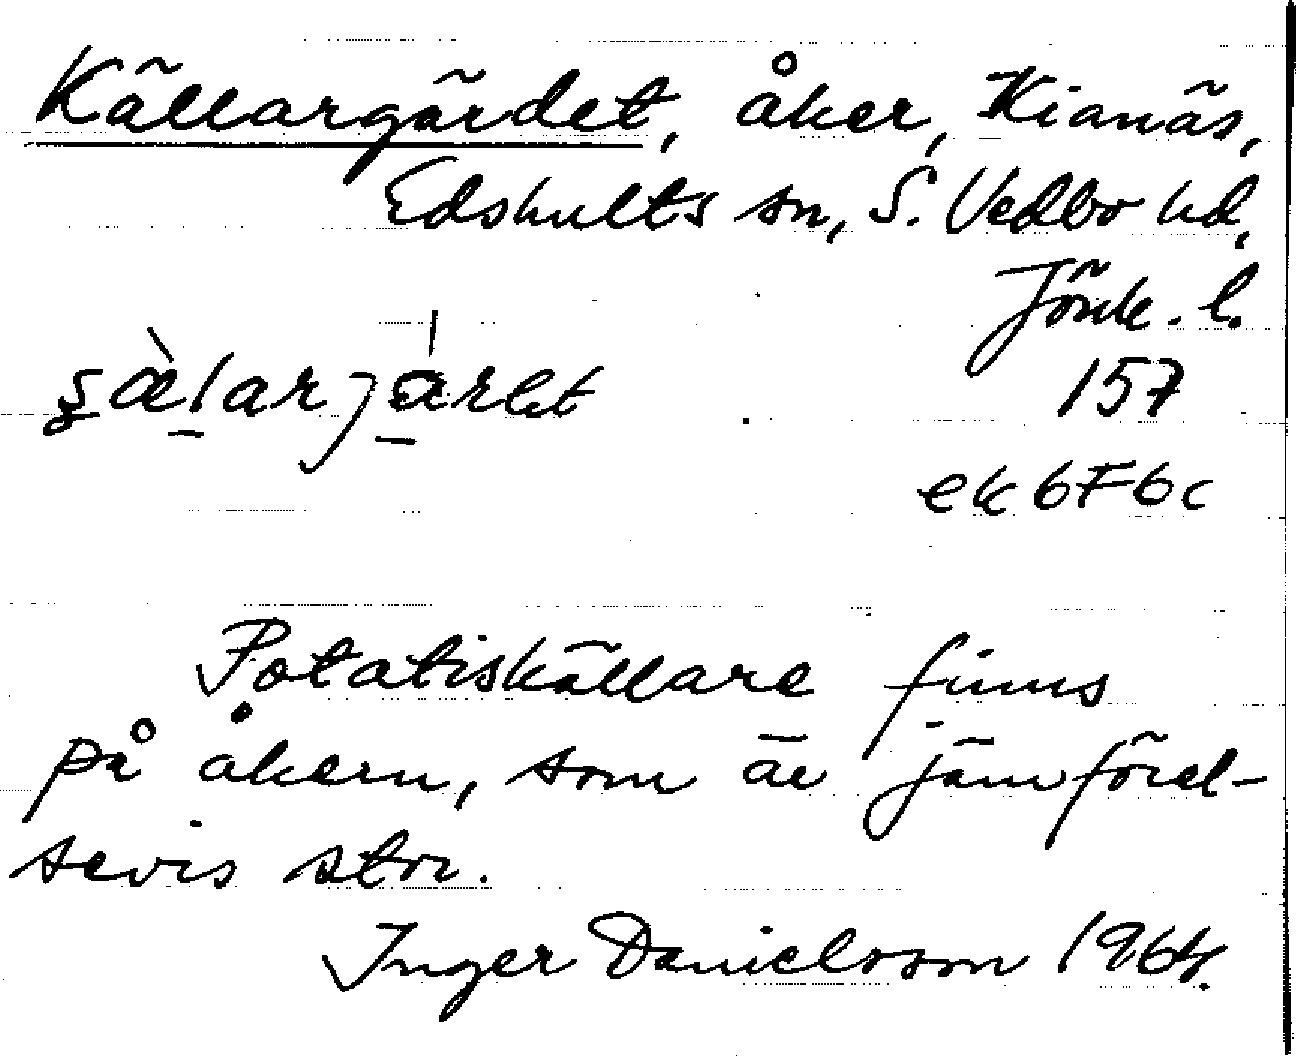 Källargärdet, åker, Kianäs,
Edshults sn, S. Vedbo hd,
Jönk. l.
157
ek 6F6c
Potatiskällare finns
på åkern, som är jämförel-
sevis stor.
Inger Danielsson 1964.